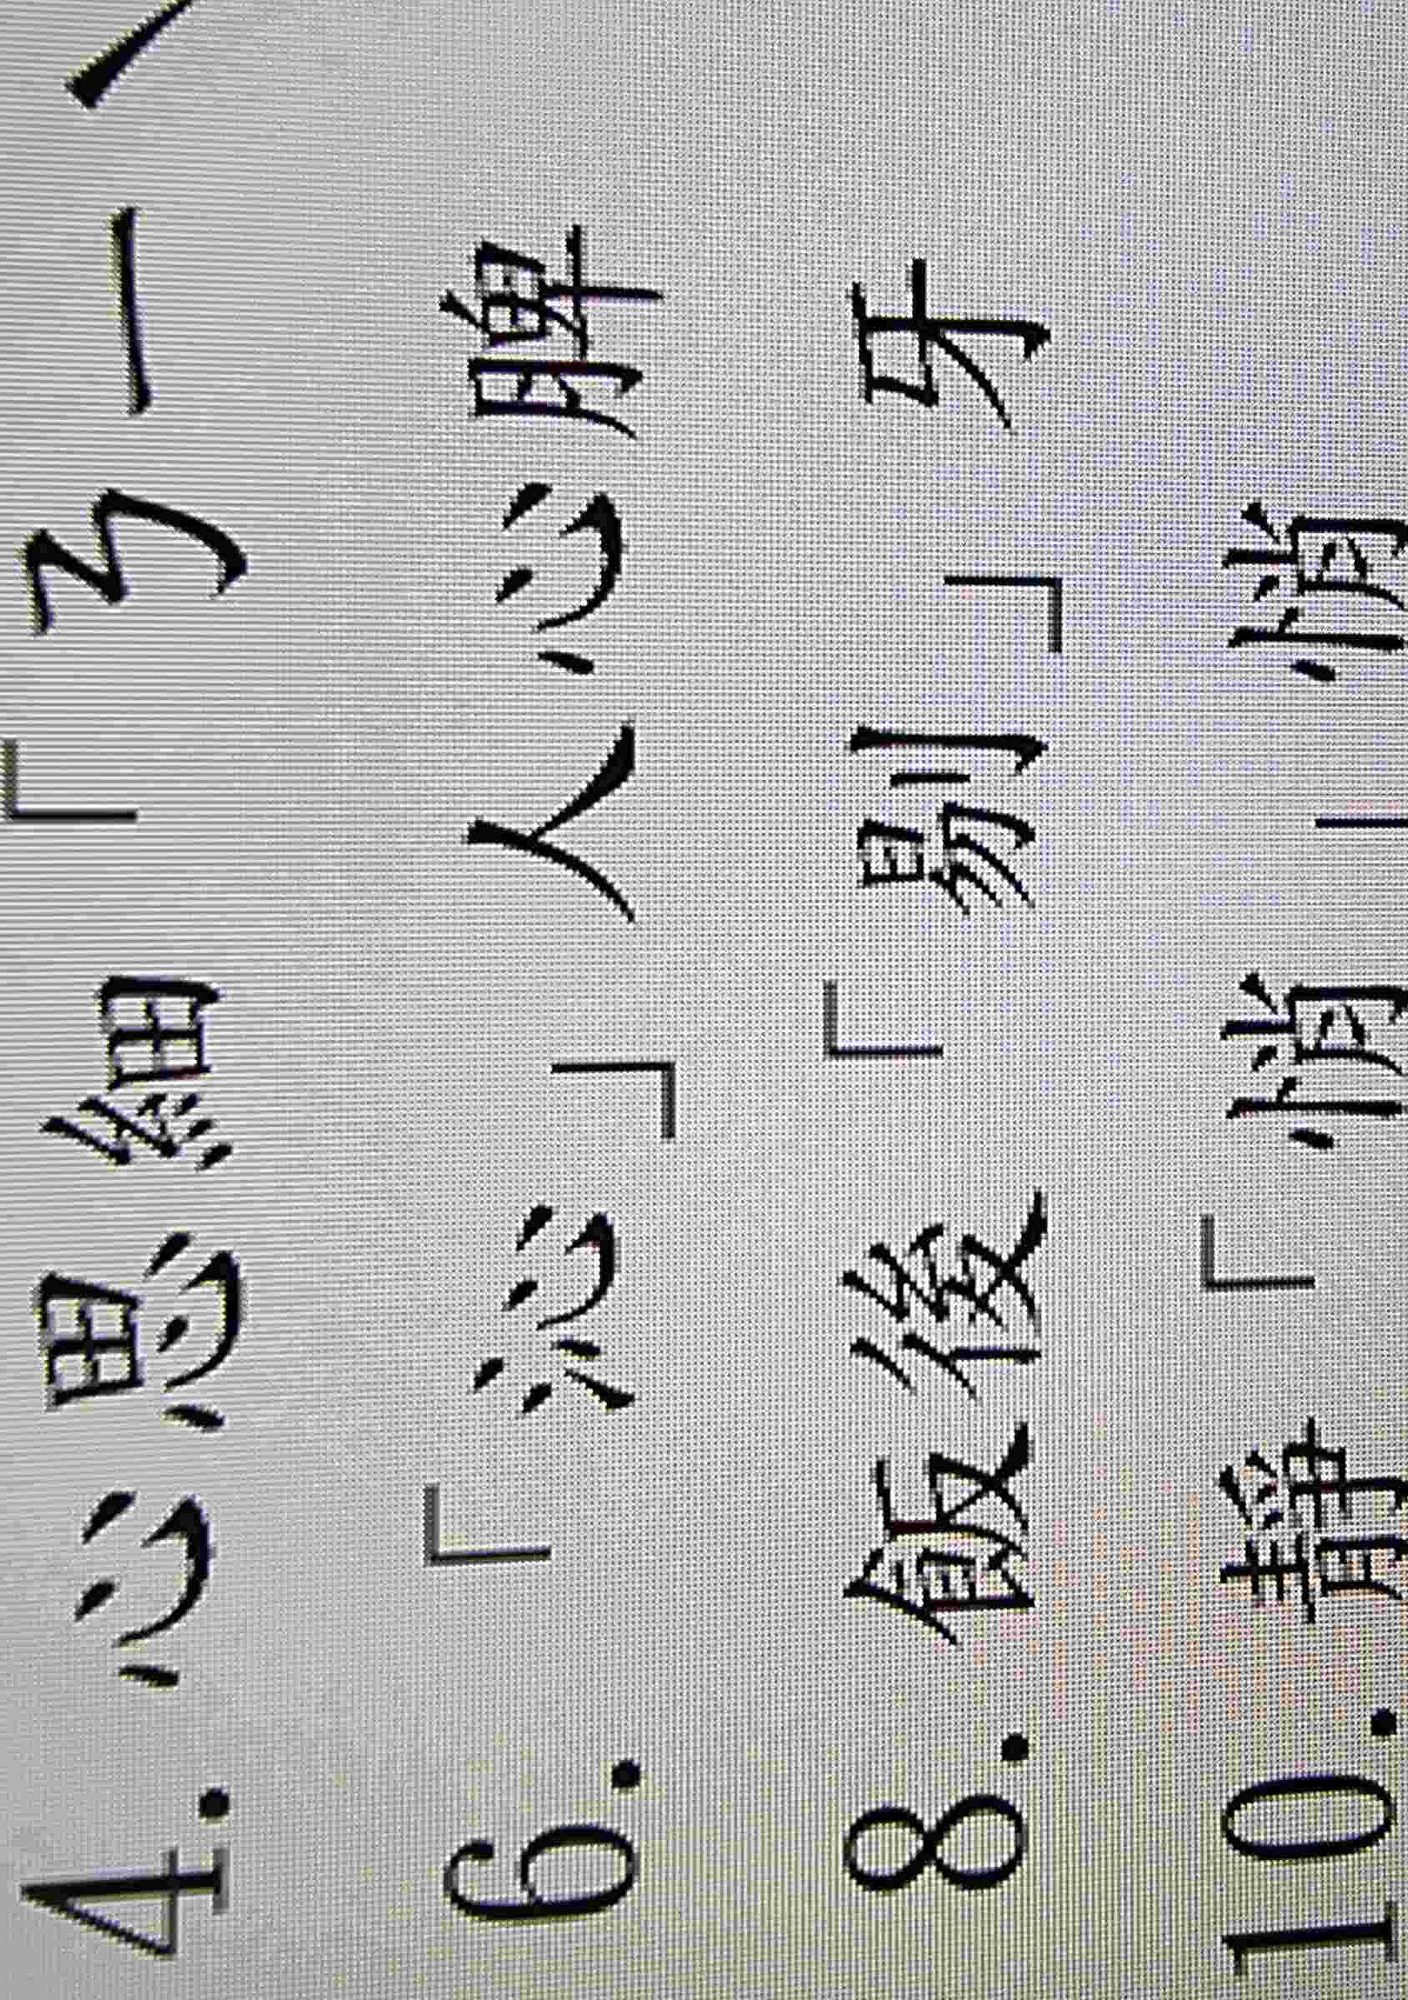 4.心思細「ㄋㄧˋ
6.「沁」人心脾
8.飯後「剔」牙
10.靜「悄」悄